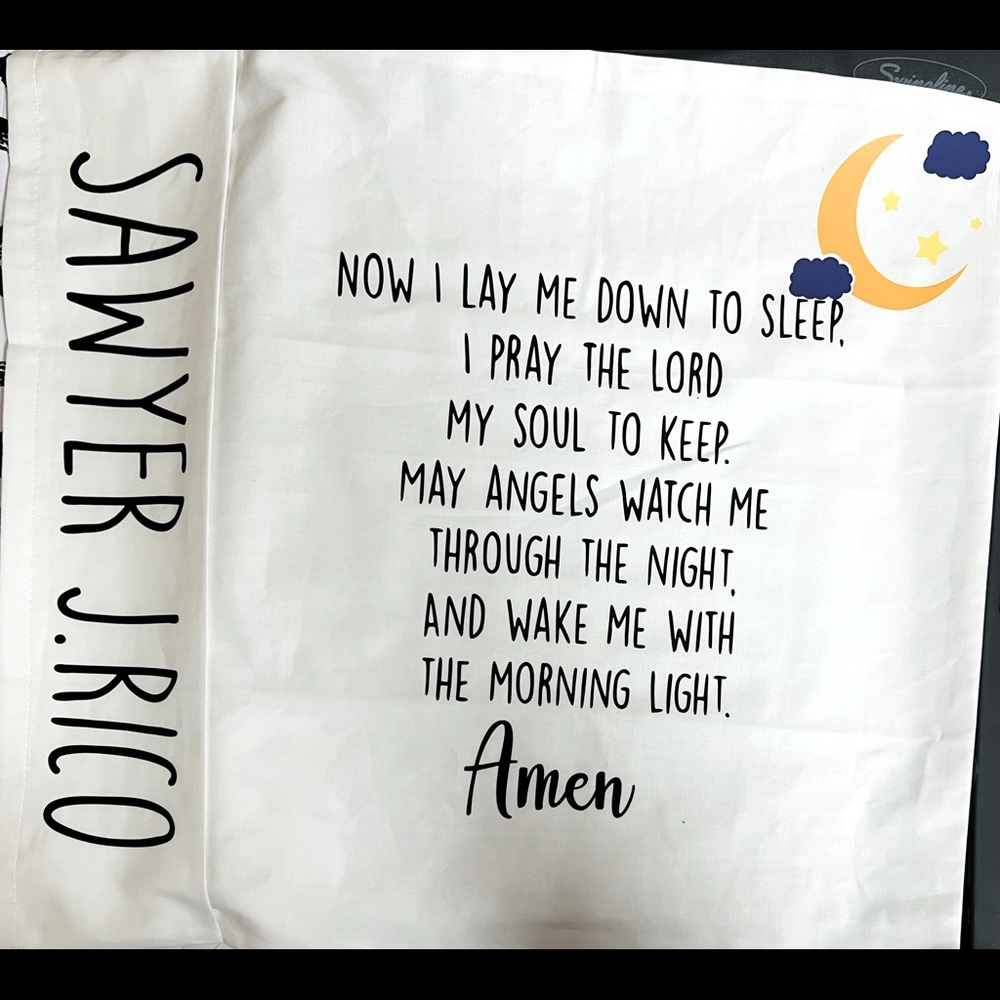 SAWYER J.RICO
NOW I LAY ME DOWN TO SLEEP,
I PRAY THE LORD
MY SOUL TO KEEP.
MAY ANGELS WATCH ME
THROUGH THE NIGHT,
AND WAKE ME WITH
THE MORNING LIGHT.
Amen
Swingline